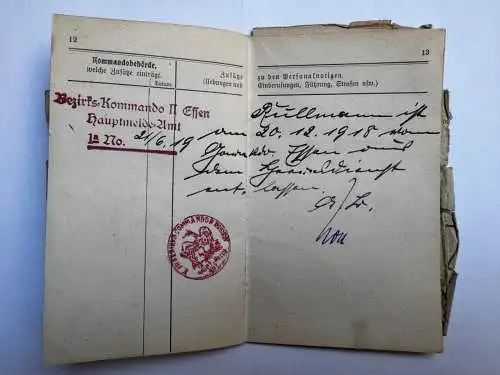 12
Kommandobehörde,
welche Zusätze einträgt.
Datum.
Zusätze
(Uebungen und
Bezirks-Kommando II Essen
Hauptmelde-Amt
Ia No. 21/6.19
13
zu den Personalnotizen.
Einberufungen, Führung, Strafen usw.)
Kullmann ist
am 20.12.1918 vom
Essen aus
dem Heeresdienst
entlassen.